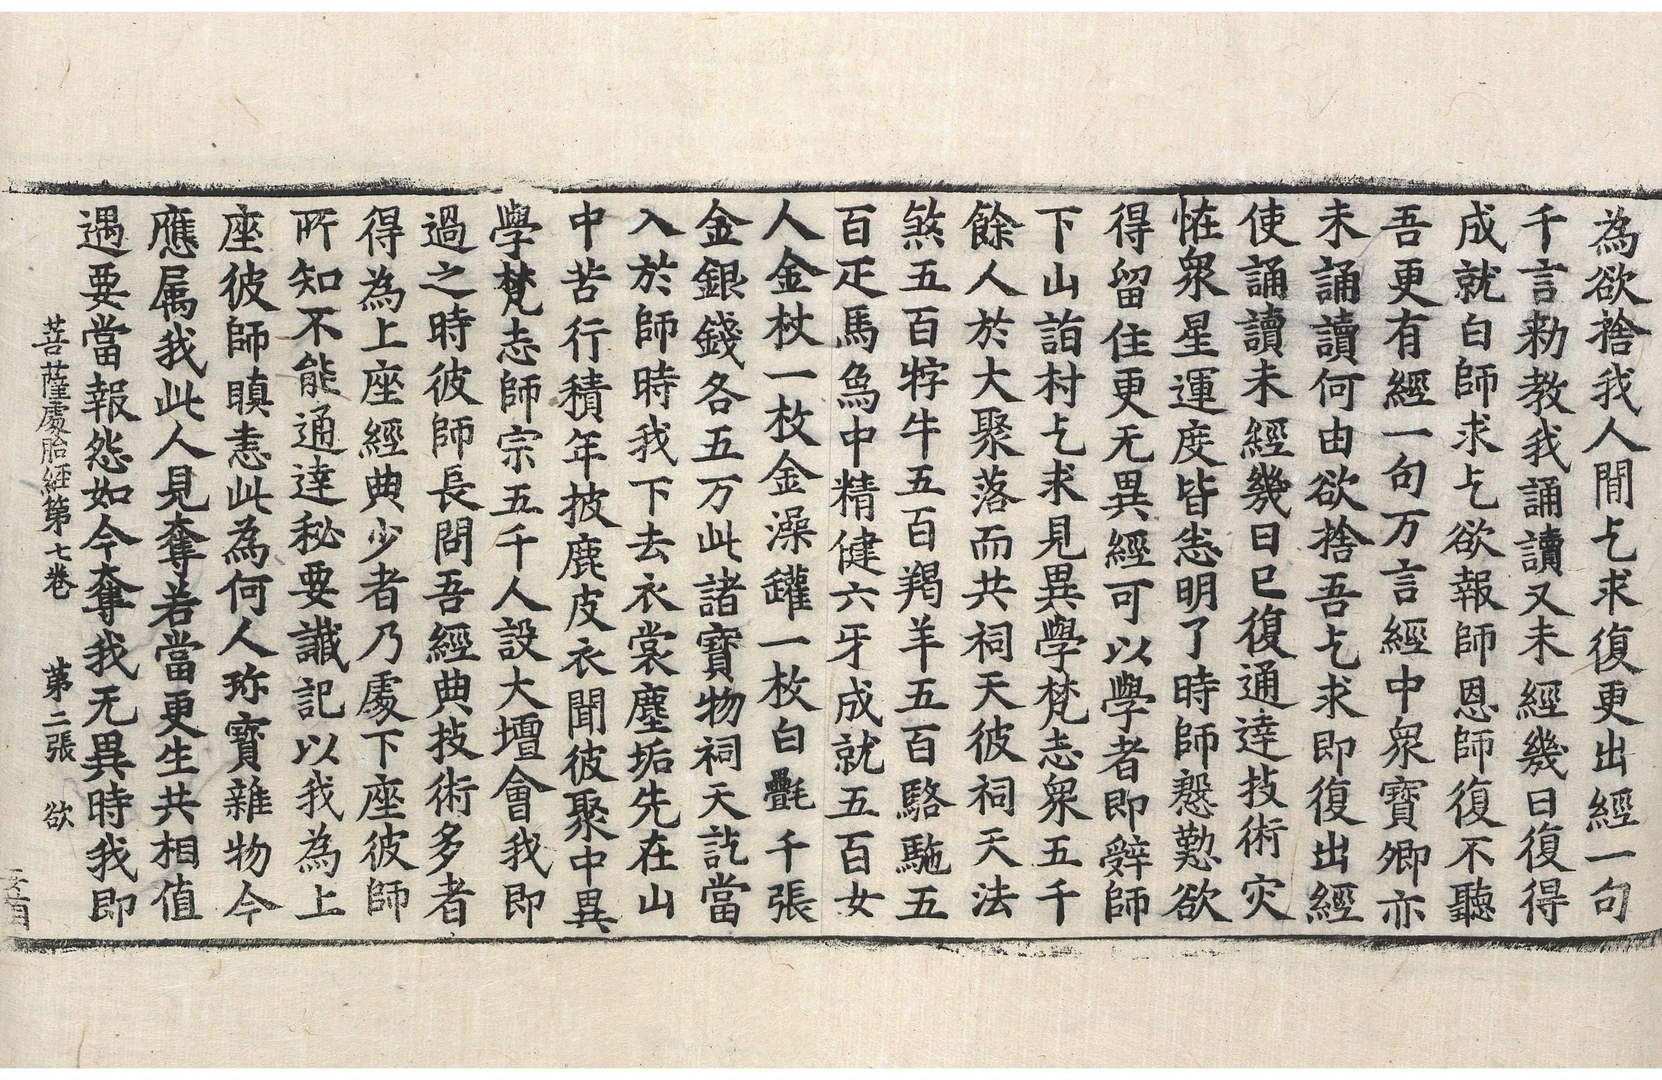 為欲捨我人間乞求復更出經一句
千言勑教我誦讀又未經幾日復得
成就白師求乞欲報師恩師復不聽
吾更有經一句万言經中衆寶卿亦
未誦讀何由欲捨吾乞求即復出經
使誦讀未經幾日已復通達技術灾
恠衆星運度皆悉明了時師慇懃欲
得留住更无異經可以學者即辭師
下山詣村乞求見異學梵志衆五千
餘人於大聚落而共祠天彼祠天法
煞五百牸牛五百羯羊五百駱駞五
百疋馬烏中精健六牙成就五百女
人金杖一枚金澡罐一枚白㲲千張
金銀錢各五万此諸寶物祠天訖當
入於師時我下去衣裳塵垢先在山
中苦行積年披鹿皮衣聞彼聚中異
學梵志師宗五千人設大壇會我即
過之時彼師長問吾經典技術多者
得為上座經典少者乃處下座彼師
所知不能通達秘要讖記以我為上
座彼師瞋恚此為何人珎寶雜物今
應属我此人見奪若當更生共相值
遇要當報怨如今奪我无異時我即
菩薩處胎經第七卷 第二張 欲